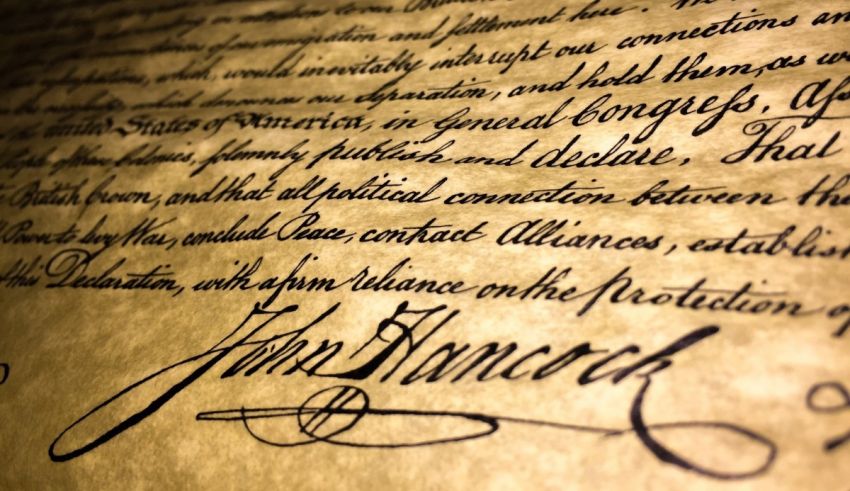 attention to our
of our emigration and settlement here. We
which, would inevitably interrupt our connections an
which denounces our Separation, and hold them, as we
the united States of America, in General Congress, Ass
people of these Colonies, solemnly publish and declare, That
British Crown, and that all political connection between the
Power to levy War, conclude Peace, contract Alliances, establish
of this Declaration, with a firm reliance on the protection of
John Hancock